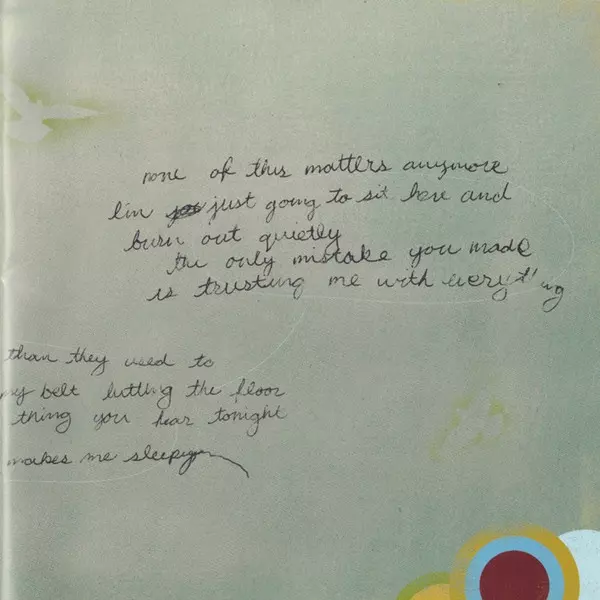 none of this matters anymore
I'm just going to sit here and
burn out quietly
the only mistake you made
is trusting me with everything
than they used to
my belt hitting the floor
thing you hear tonight
makes me sleepy